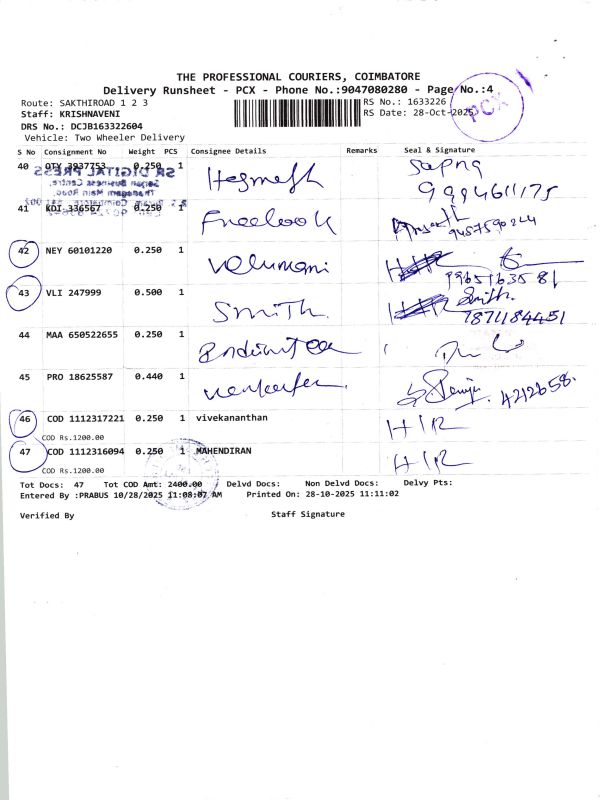 THE PROFESSIONAL COURIERS, COIMBATORE
Delivery Runsheet - PCX - Phone No.:9047080280 - Page No.:4
Route: SAKTHIROAD 1 2 3
RS No.: 1633226
Staff: KRISHNAVENI
RS Date: 28-Oct-2025
PCX
DRS No.: DCJB163322604
Vehicle: Two Wheeler Delivery
S No Consignment No Weight PCS Consignee Details Remarks Seal & Signature
40 QTY 3937753 0.250 1 Sapna
9994611175
SR DIGITAL PRESS
41 KDI 336567 0.250 1 Freelook
42 NEY 60101220 0.250 1 Velumani
9965163581
43 VLI 247999 0.500 1 Smith. Smith.
7871184451
44 MAA 650522655 0.250 1
45 PRO 18625587 0.440 1 4212658.
46 COD 1112317221 0.250 1 vivekananthan HIR
COD Rs.1200.00
47 COD 1112316094 0.250 1 MAHENDIRAN HIR
COD Rs.1200.00
Tot Docs: 47 Tot COD Amt: 2400.00 Delvd Docs: Non Delvd Docs: Delvy Pts:
Entered By :PRABUS 10/28/2025 11:08:07 AM Printed On: 28-10-2025 11:11:02
Verified By Staff Signature